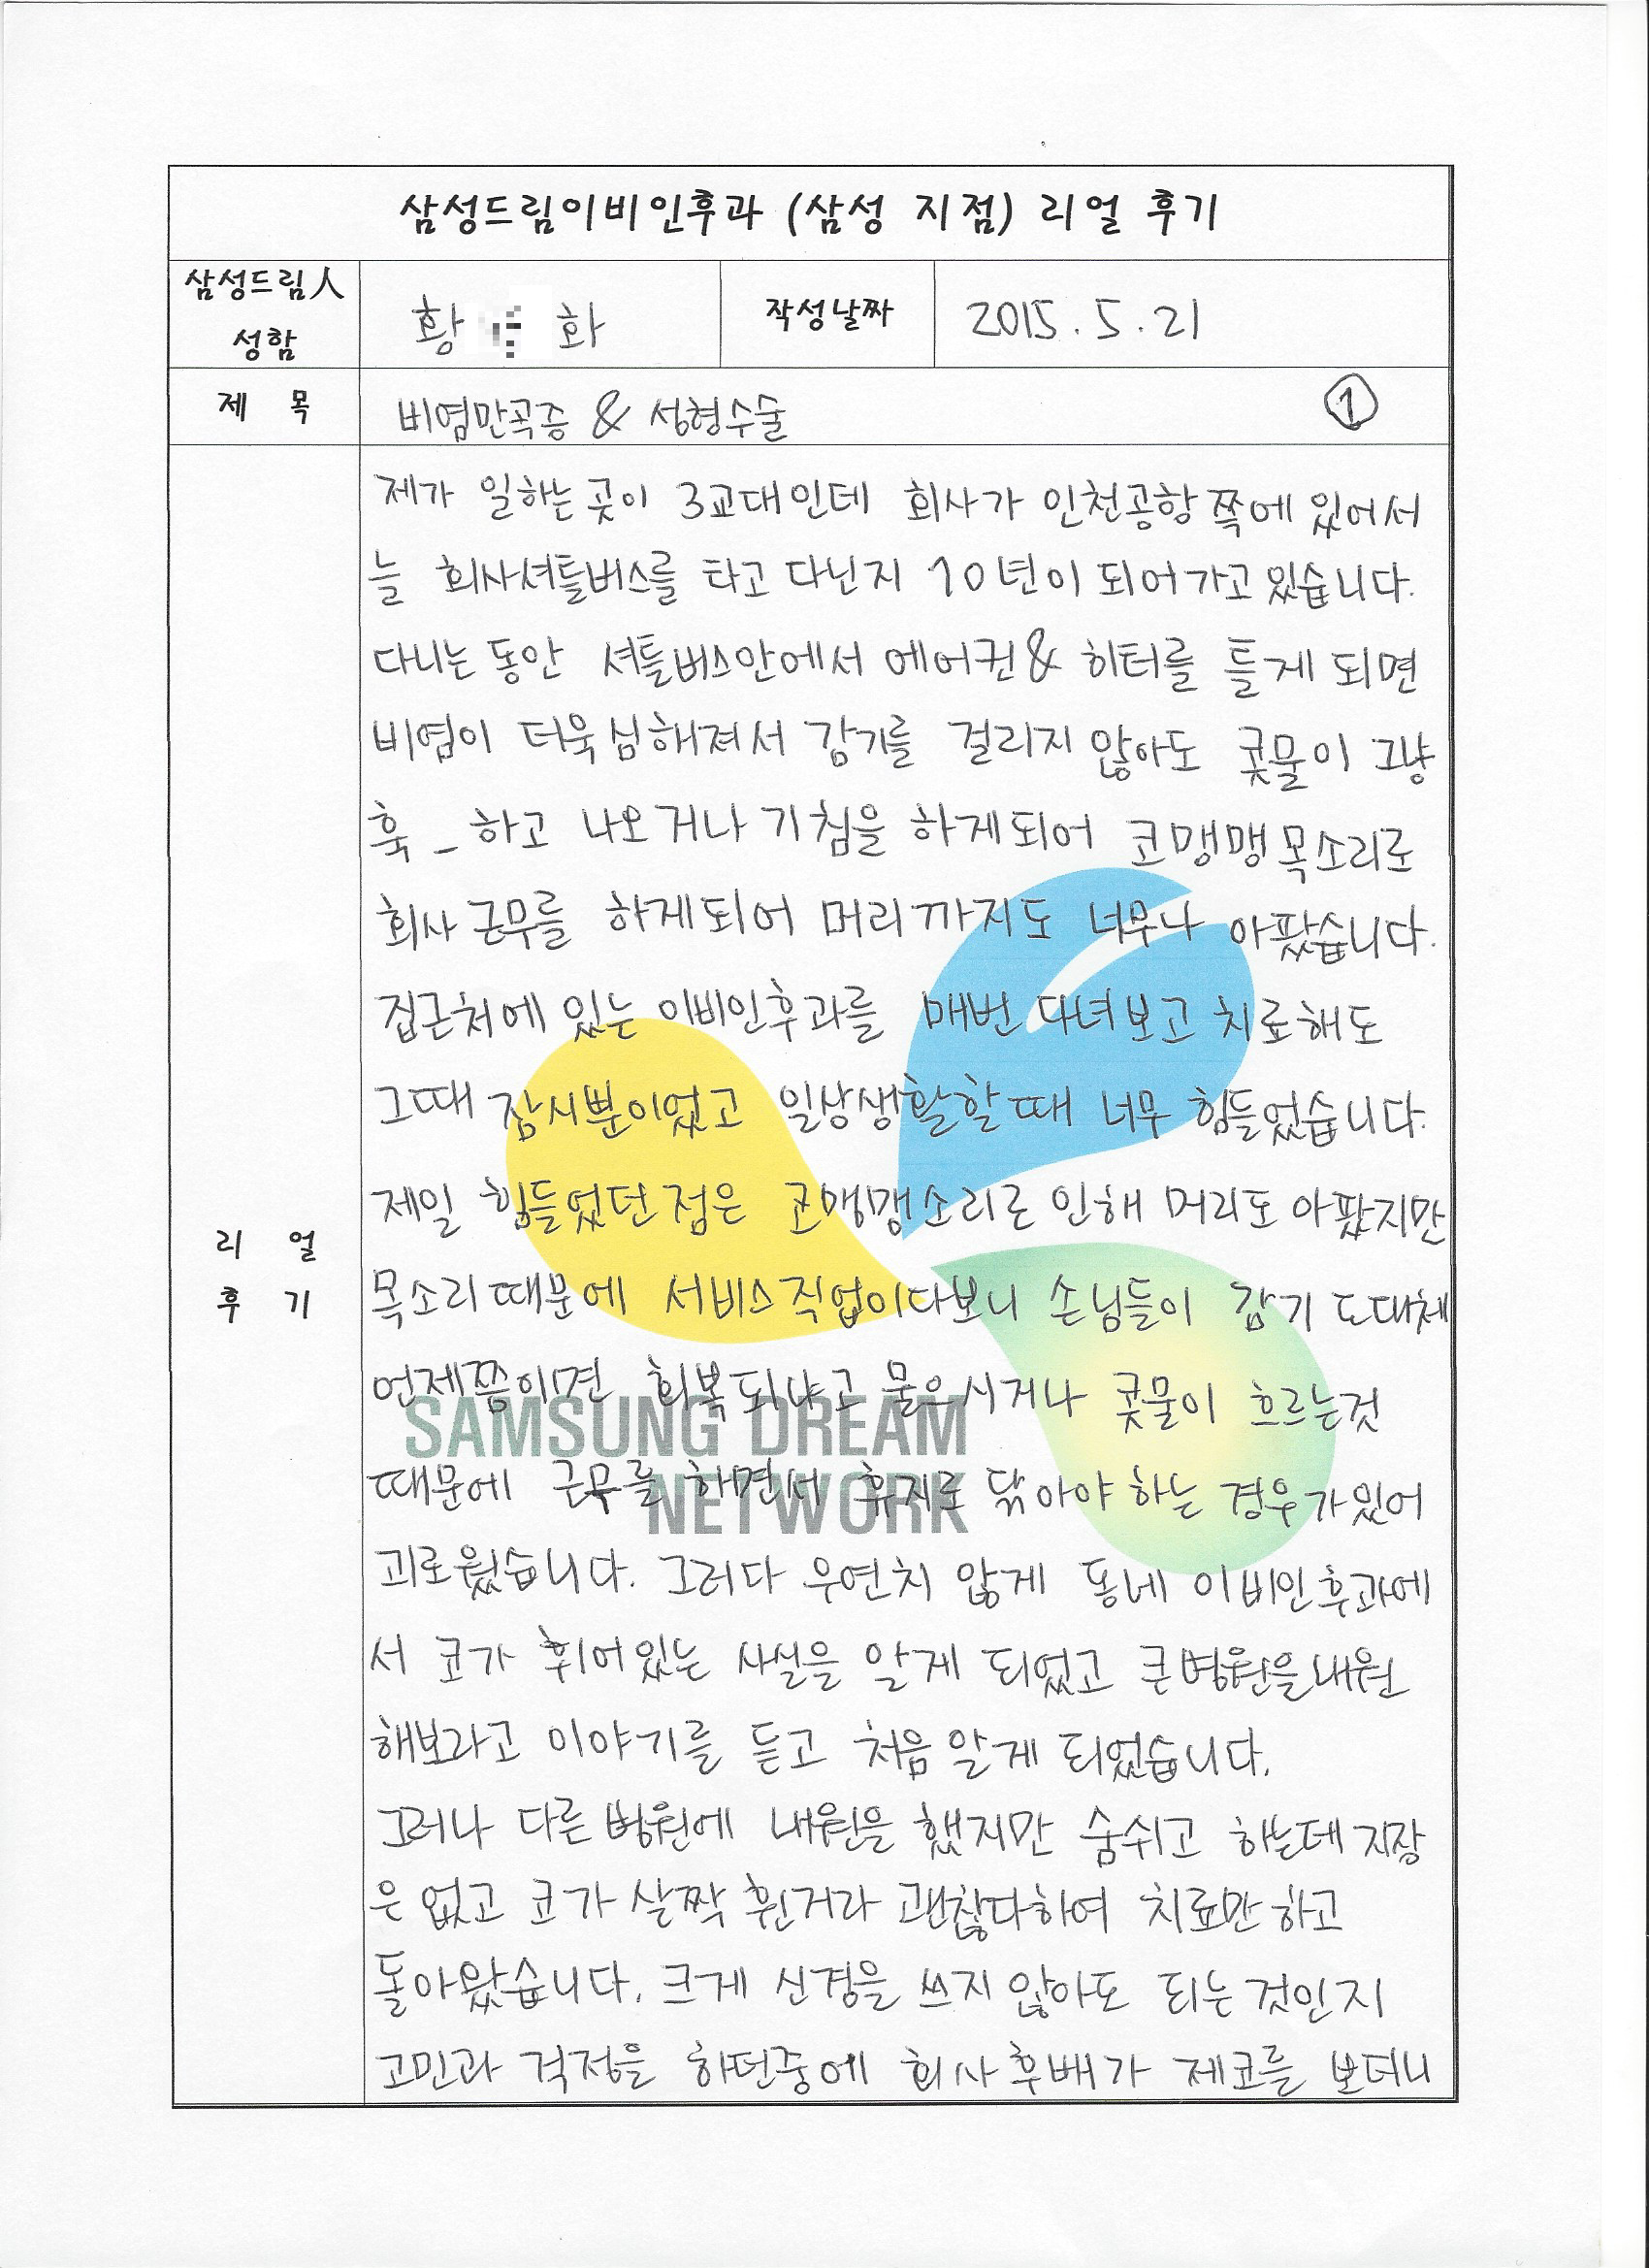 삼성드림이비인후과 (삼성 지점) 리얼 후기
삼성드림人
성함
황 화
작성날짜
2015. 5. 21
제 목
비염만곡증 & 성형수술
①
제가 일하는 곳이 3교대인데 회사가 인천공항 쪽에 있어서
늘 회사셔틀버스를 타고 다닌지 10년이 되어가고 있습니다.
다니는 동안 셔틀버스안에서 에어컨& 히터를 틀게 되면
비염이 더욱 심해져서 감기를 걸리지 않아도 콧물이 그냥
훅_ 하고 나오거나 기침을 하게되어 코맹맹 목소리로
회사 근무를 하게되어 머리까지도 너무나 아팠습니다.
집근처에 있는 이비인후과를 매번 다녀보고 치료해도
그때 잠시뿐이었고 일상생활할때 너무 힘들었습니다.
제일 힘들었던 점은 코맹맹소리로 인해 머리도 아팠지만
목소리때문에 서비스직업이다보니 손님들이 감기 도대체
언제쯤이면 회복되냐고 물으시거나 콧물이 흐르는것
때문에 근무를 하면서 휴지로 닦아야 하는 경우가있어
괴로웠습니다. 그러다 우연치 않게 동네 이비인후과에
서 코가 휘어있는 사실을 알게 되었고 큰병원을내원
해보라고 이야기를 듣고 처음 알게 되었습니다.
그러나 다른 병원에 내원을 했지만 숨쉬고 하는데 지장
은 없고 코가 살짝 휜거라 괜찮다하여 치료만 하고
돌아왔습니다. 크게 신경을 쓰지 않아도 되는 것인지
고민과 걱정을 하던중에 회사후배가 제코를 보더니
리 얼
후 기
SAMSUNG DREAM
NETWORK